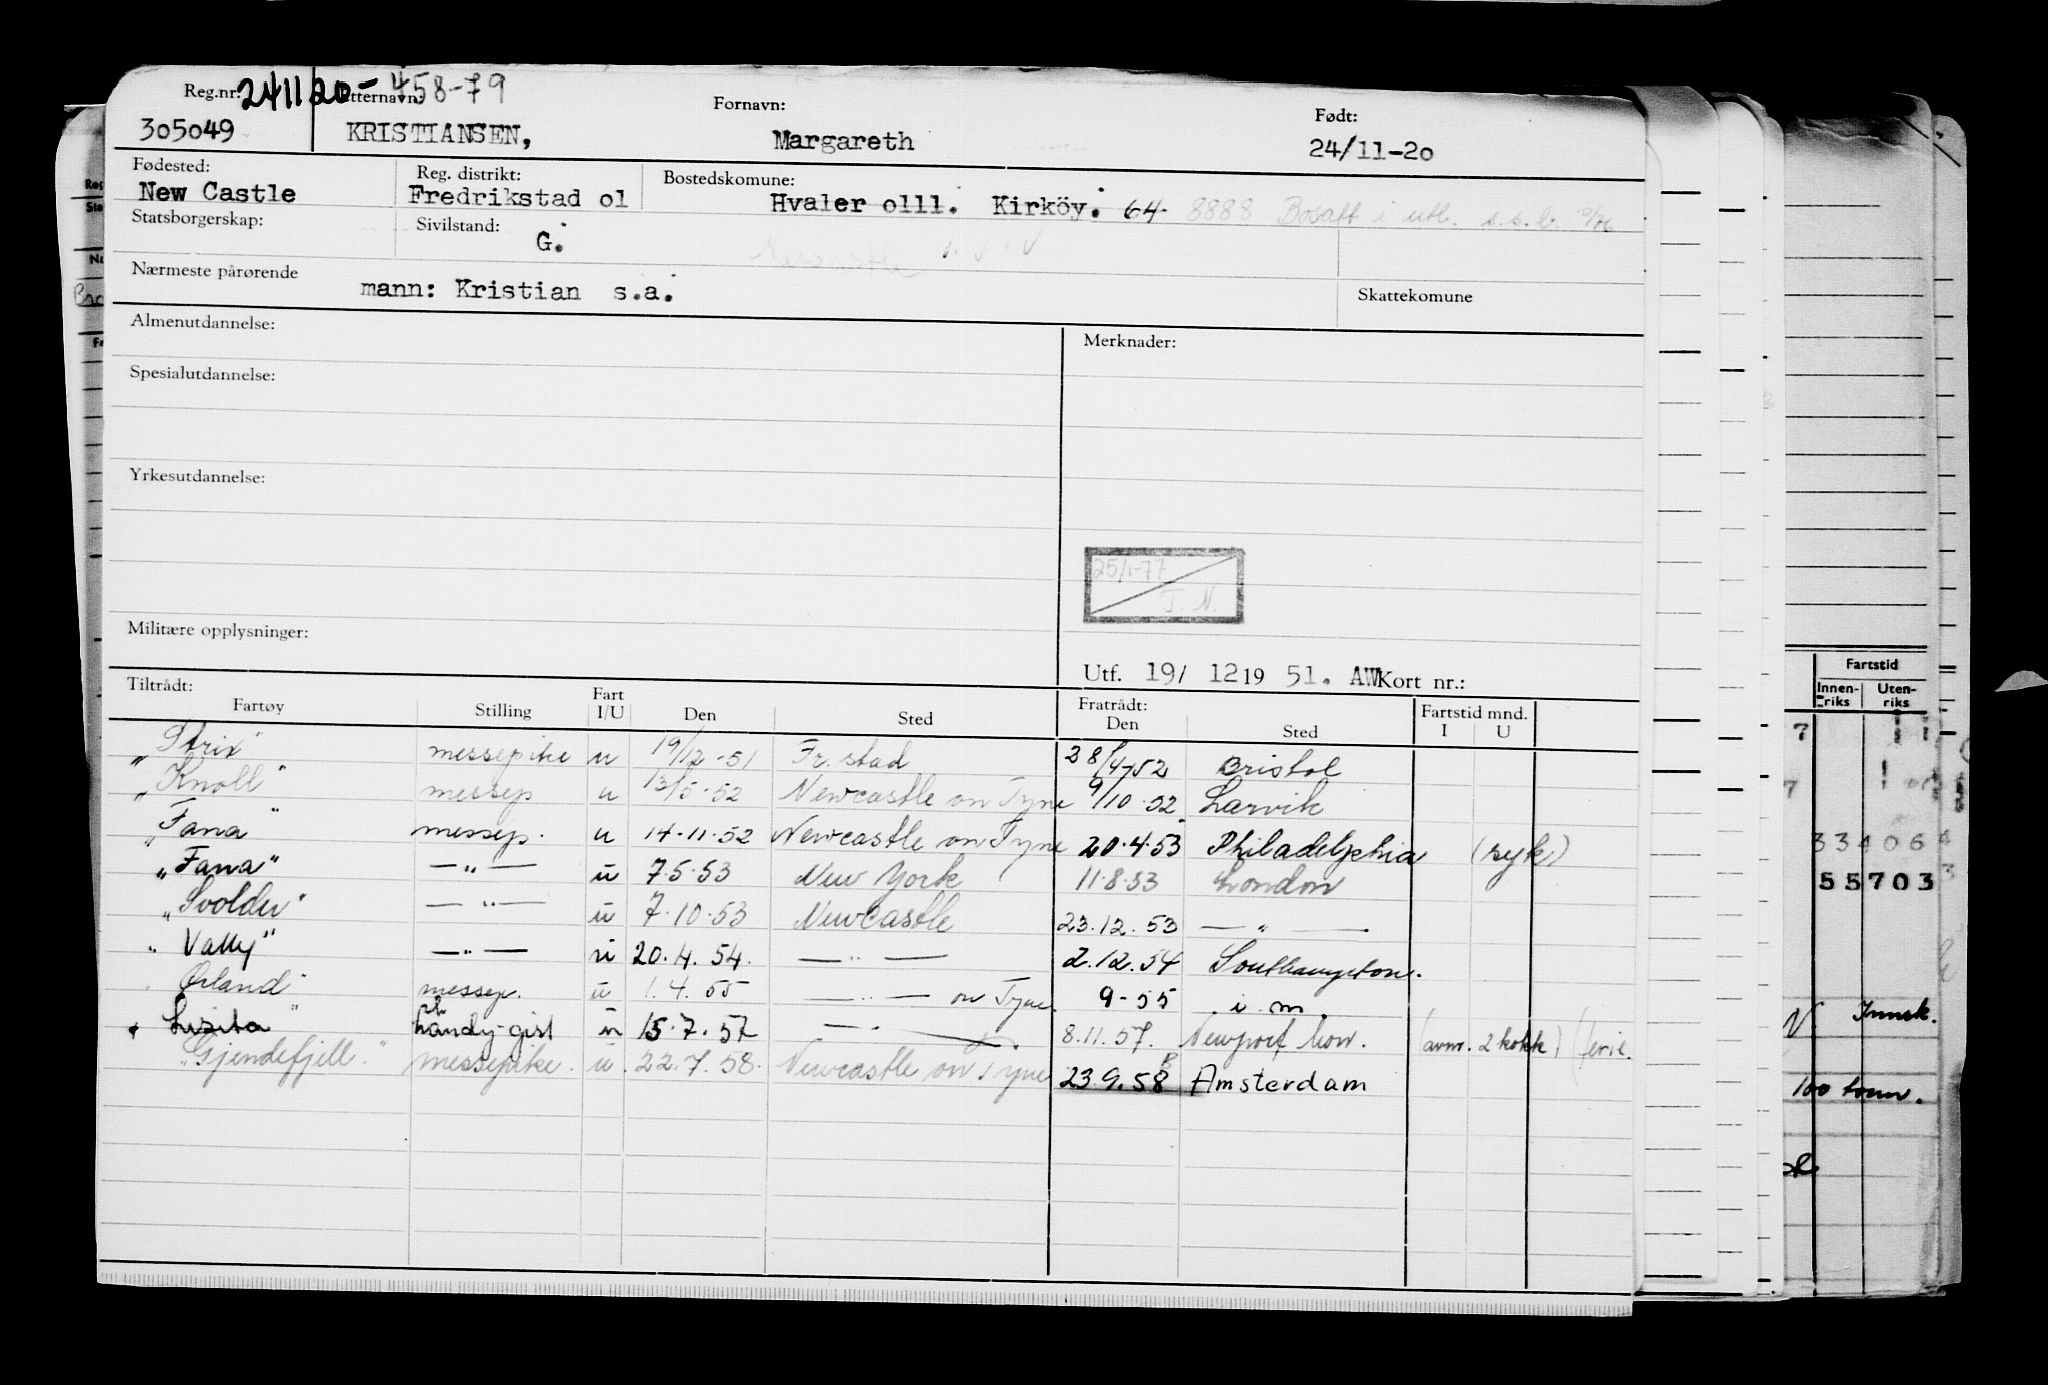 Reg.nr. 241120-45879 Etternavn: Fornavn: Født:
305049 KRISTIANSEN, Margareth 24/11-20
Fødested: Reg. distrikt: Bostedskomune:
New Castle Fredrikstad ol Hvaler olll. Kirköy. 64. 8888 Bosatt i utl. s.s.b.
Statsborgerskap: Sivilstand: G. Newcastle
Nærmeste pårørende mann: Kristian s.a. Skattekomune
Almenutdannelse: Merknader:
Spesialutdannelse:
Yrkesutdannelse:
25/1-77
T. N.
Militære opplysninger:
Utf. 19/ 12 19 51. AW Kort nr.:
Tiltrådt: Fratrådt: Fartstid mnd.
Fartøy Stilling Fart I/U Den Sted Den Sted I U
"Strix" messepike u 19/12-51 Fr.stad 28/4-52 Bristol
"Knoll" messep u 13/5-52 Newcastle on Tyne 9/10-52 Larvik
"Fana" messep. u 14-11-52 Newcastle on Tyne 20.4.53 Philadelphia (syk)
"Fana" —"— u 7.5.53 New York 11.8.53 London
"Svolder" —"— u 7.10.53 Newcastle 23.12.53 —"—
"Vally" —"— u 20.4.54. —"— 2.12.54 Southampton.
"Ørland" messep. u 1.4.55 —"— on Tyne. 9-55 i.m.
"Lisita" handy-gist u 15.7.57 —"— 8.11.57. Newport Mon. (avm. 2 kokk) (ferie.
"Gjendefjell." messepike. u. 22.7.58. Newcastle on Tyne 23.9.58 Amsterdam
Fartstid
Innen-riks Uten-riks
7
7
33406
55703
N. Innsk.
100 tonn.